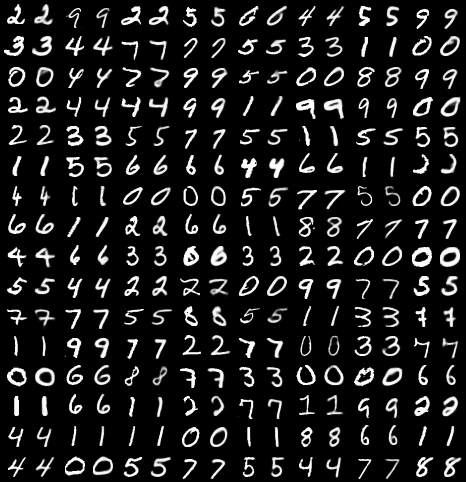 2 2 9 9 2 2 5 5 6 6 4 4 5 5 9 9
3 3 4 4 7 7 7 7 5 5 3 3 1 1 0 0
0 0 4 4 7 7 9 9 5 5 0 0 8 8 9 9
2 2 4 4 4 4 9 9 1 1 9 9 9 9 0 0
2 2 3 3 5 5 7 7 5 5 1 1 5 5 5 5
1 1 5 5 6 6 6 6 4 4 6 6 1 1 2 2
4 4 1 1 0 0 0 0 5 5 7 7 5 5 0 0
6 6 1 1 2 2 6 6 1 1 8 8 7 7 7 7
4 4 6 6 3 3 6 6 3 3 2 2 0 0 0 0
5 5 4 4 2 2 2 2 0 0 9 9 7 7 5 5
7 7 7 7 5 5 8 8 5 5 1 1 3 3 1 1
1 1 9 9 7 7 2 2 7 7 0 0 3 3 7 7
0 0 6 6 8 8 7 7 3 3 0 0 0 0 6 6
1 1 6 6 1 1 2 2 7 7 1 1 9 9 2 2
4 4 1 1 1 1 0 0 1 1 8 8 6 6 1 1
4 4 0 0 5 5 7 7 5 5 4 4 7 7 8 8